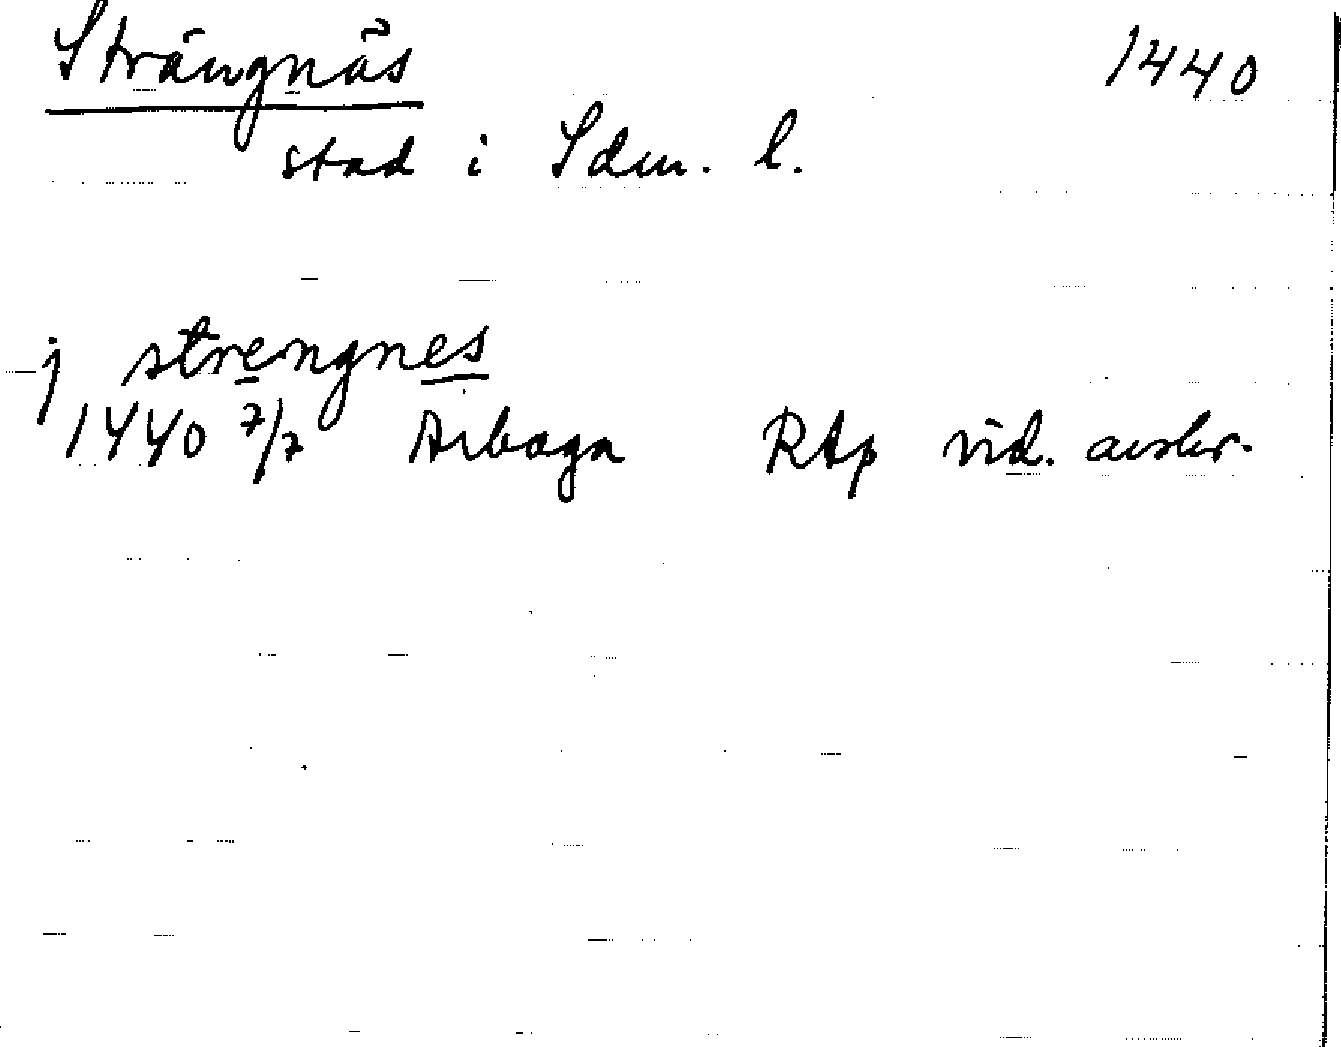 Strängnäs 1440
stad i Sdm. l.
j strengnes
1440 7/7 Arboga RAp vid. avskr.